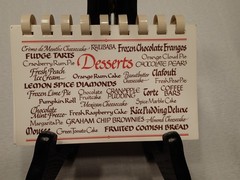 Crème de Menthe Cheesecake RHUBABA Frozen Chocolate Frangos
FUDGE TARTS Orange Cloud Pie
Cranberry Rum Pie Desserts CHOCOLATE PEARS
Fresh Peach Ice Cream Orange Rum Cake Clafouti
LEMON SPICE DIAMONDS Fresh Peach Pie
Frozen Lime Pie Chocolate Fondue GRANOLA Torte COFFEE BARS
Pumpkin Roll Mexican Cheesecake Spice Marble Cake
Chocolate Mint Freeze Fresh Raspberry Cake Rice Pudding Deluxe
Margarita Pie GRAHAM CHIP BROWNIES Almond Cheesecake
Mousse Green Tomato Cake FRUITED CORNISH BREAD